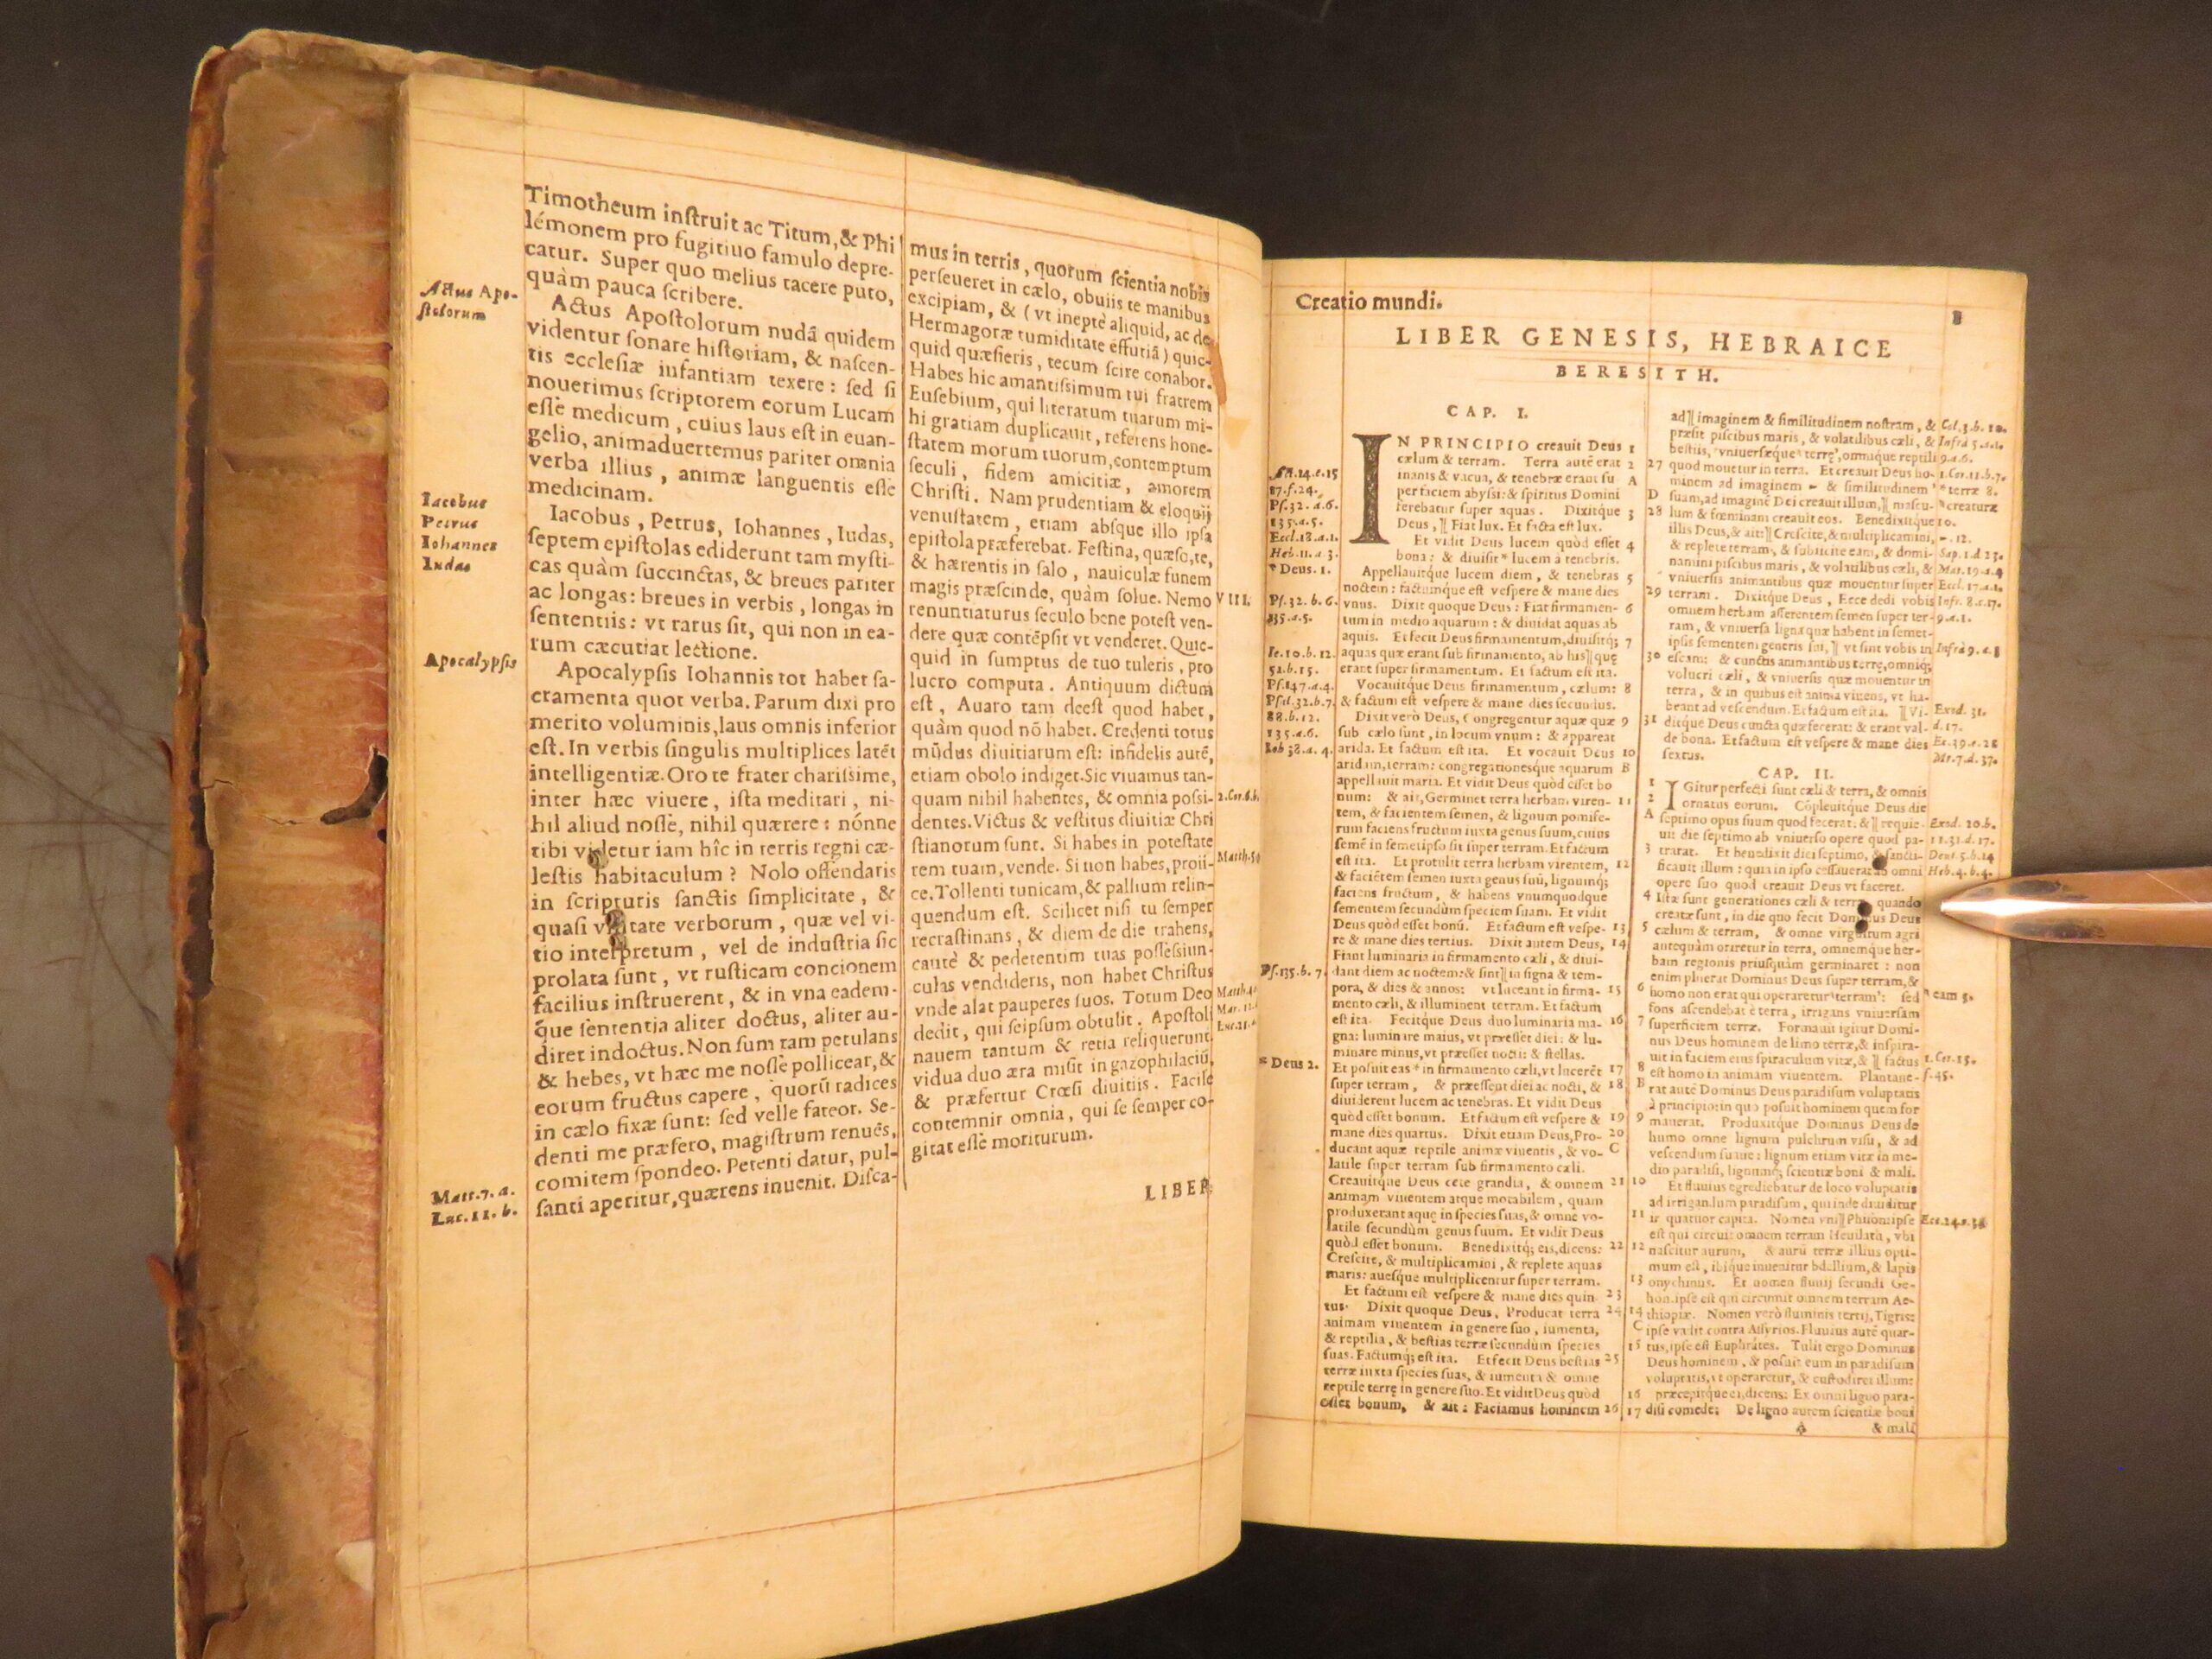 Timotheum inſtruit ac Titum, & Phi
lémonem pro fugitiuo famulo depre-
catur. Super quo melius tacere puto,
quàm pauca ſcribere.
Actus Apo-
ſtolorum
Actus Apoſtolorum nudã quidem
videntur ſonare hiſtoriam, & naſcen-
tis eccleſiæ infantiam texere: ſed ſi
nouerimus ſcriptorem eorum Lucam
eſſe medicum, cuius laus eſt in euan-
gelio, animaduertemus pariter omnia
verba illius, animæ languentis eſſe
medicinam.
Iacobus
Petrus
Iohannes
Iudas
Iacobus, Petrus, Iohannes, Iudas,
ſeptem epiſtolas ediderunt tam myſti-
cas quàm ſuccinctas, & breues pariter
ac longas: breues in verbis, longas in
ſententiis: vt rarus ſit, qui non in ea-
rum cæcutiat lectione.
Apocalypſis
Apocalypſis Iohannis tot habet ſa-
cramenta quot verba. Parum dixi pro
merito voluminis, laus omnis inferior
eſt. In verbis ſingulis multiplices latẽt
intelligentiæ. Oro te frater chariſsime,
inter hæc viuere, iſta meditari, ni-
hil aliud noſſe, nihil quærere: nónne
tibi videtur iam hîc in terris regni cæ-
leſtis habitaculum? Nolo offendaris
in ſcripturis ſanctis ſimplicitate, &
quaſi vilitate verborum, quæ vel vi-
tio interpretum, vel de induſtria ſic
prolata ſunt, vt ruſticam concionem
facilius inſtruerent, & in vna eadem-
que ſententia aliter doctus, aliter au-
diret indoctus. Non ſum tam petulans
& hebes, vt hæc me noſſe pollicear, &
eorum fructus capere, quorũ radices
in cælo fixæ ſunt: ſed velle fateor. Se-
denti me præfero, magiſtrum renuẽs,
comitem ſpondeo. Petenti datur, pul-
ſanti aperitur, quærens inuenit. Diſca-
Matt.7. a.
Luc.11. b.
mus in terris, quorum ſcientia nobis
perſeueret in cælo, obuiis te manibus
excipiam, & (vt ineptè aliquid, ac de
Hermagoræ tumiditate effutiã) quic-
quid quæſieris, tecum ſcire conabor.
Habes hic amantiſsimum tui fratrem
Euſebium, qui literarum tuarum mi-
hi gratiam duplicauit, referens hone-
ſtatem morum tuorum, contemptum
ſeculi, fidem amicitiæ, amorem
Chriſti. Nam prudentiam & eloquij
venuſtatem, etiam abſque illo ipſa
epiſtola præferebat. Feſtina, quæſo, te,
& hærentis in ſalo, nauiculæ funem
magis præſcinde, quàm ſolue. Nemo VIII.
renuntiaturus ſeculo bene poteſt ven-
dere quæ contẽpſit vt venderet. Quic-
quid in ſumptus de tuo tuleris, pro
lucro computa. Antiquum dictum
eſt, Auaro tam deeſt quod habet,
quàm quod nõ habet. Credenti totus
mũdus diuitiarum eſt: infidelis autẽ,
etiam obolo indiget. Sic viuamus tan-
quam nihil habentes, & omnia poſsi- 2.Cor.6.b.
dentes. Victus & veſtitus diuitiæ Chri
ſtianorum ſunt. Si habes in poteſtate
rem tuam, vende. Si non habes, proii-
ce. Tollenti tunicam, & pallium relin-
quendum eſt. Scilicet niſi tu ſemper
recraſtinans, & diem de die trahens,
cautè & pedetentim tuas poſſeſsiun-
culas vendideris, non habet Chriſtus
vnde alat pauperes ſuos. Totum Deo
dedit, qui ſeipſum obtulit. Apoſtoli
nauem tantum & retia reliquerunt.
vidua duo æra miſit in gazophilaciũ,
& præfertur Crœſi diuitiis. Facilè
contemnit omnia, qui ſe ſemper co-
gitat eſſe moriturum.
LIBER
Creatio mundi.
LIBER GENESIS, HEBRAICE
BERESITH.
CAP. I.
IN PRINCIPIO creauit Deus 1
cælum & terram. Terra autẽ erat 2
inanis & vacua, & tenebræ erant ſu- A
per faciem abyſsi: & ſpiritus Domini
ferebatur ſuper aquas. Dixitque 3
Deus, Fiat lux. Et facta eſt lux.
Et vidit Deus lucem quòd eſſet 4
bona: & diuiſit * lucem à tenebris.
Appellauitque lucem diem, & tenebras 5
noctem: factumque eſt veſpere & mane dies
vnus. Dixit quoque Deus: Fiat firmamen- 6
tum in medio aquarum: & diuidat aquas ab
aquis. Et fecit Deus firmamentum, diuiſitq; 7
aquas quæ erant ſub firmamento, ab his quę
erant ſuper firmamentum. Et factum eſt ita.
Vocauitque Deus firmamentum, cælum: 8
& factum eſt veſpere & mane dies ſecundus.
Dixit verò Deus, Congregentur aquæ quæ 9
ſub cælo ſunt, in locum vnum: & appareat
arida. Et factum eſt ita. Et vocauit Deus 10
aridam, terram: congregationesque aquarum B
appellauit maria. Et vidit Deus quòd eſſet bo
num: & ait, Germinet terra herbam viren- 11
tem, & facientem ſemen, & lignum pomife-
rum faciens fructum iuxta genus ſuum, cuius
ſemẽ in ſemetipſo ſit ſuper terram. Et factum
eſt ita. Et protulit terra herbam virentem, 12
& faciẽtem ſemen iuxta genus ſuũ, lignumq;
faciens fructum, & habens vnumquodque
ſementem ſecundùm ſpeciem ſuam. Et vidit
Deus quòd eſſet bonũ. Et factum eſt veſpe- 13
re & mane dies tertius. Dixit autem Deus, 14
Fiant luminaria in firmamento cæli, & diui-
dant diem ac noctem: & ſint in ſigna & tem-
pora, & dies & annos: vt luceant in firma- 15
mento cæli, & illuminent terram. Et factum
eſt ita. Fecitque Deus duo luminaria ma- 16
gna: luminare maius, vt præeſſet diei: & lu-
minare minus, vt præeſſet nocti: & ſtellas.
Et poſuit eas * in firmamento cæli, vt lucerẽt 17
ſuper terram, & præeſſent diei ac nocti, & 18
diuiderent lucem ac tenebras. Et vidit Deus
quòd eſſet bonum. Et factum eſt veſpere & 19
mane dies quartus. Dixit etiam Deus, Pro- 20
ducant aquæ reptile animæ viuentis, & vo- C
latile ſuper terram ſub firmamento cæli.
Creauitque Deus cete grandia, & omnem 21
animam viuentem atque motabilem, quam
produxerant aquę in ſpecies ſuas, & omne vo-
latile ſecundùm genus ſuum. Et vidit Deus
quòd eſſet bonum. Benedixitq; eis, dicens: 22
Creſcite, & multiplicamini, & replete aquas
maris: aueſque multiplicentur ſuper terram.
Et factum eſt veſpere & mane dies quin- 23
tus. Dixit quoque Deus, Producat terra 24
animam viuentem in genere ſuo, iumenta,
& reptilia, & beſtias terræ ſecundùm ſpecies
ſuas. Factumq; eſt ita. Et fecit Deus beſtias 25
terræ iuxta ſpecies ſuas, & iumenta & omne
reptile terrę in genere ſuo. Et vidit Deus quòd
eſſet bonum, & ait: Faciamus hominem 26
ad imaginem & ſimilitudinem noſtram, &
præſit piſcibus maris, & volatilibus cæli, &
beſtiis, vniuerſæque terrę, omnique reptili
27 quod mouetur in terra. Et creauit Deus ho-
minem ad imaginem & ſimilitudinem
D ſuam, ad imaginẽ Dei creauit illum, maſcu-
28 lum & fœminam creauit eos. Benedixitque
illis Deus, & ait: Creſcite, & multiplicamini,
& replete terram, & ſubiicite eam, & domi-
namini piſcibus maris, & volatilibus cæli, &
vniuerſis animantibus quæ mouentur ſuper
29 terram. Dixitque Deus, Ecce dedi vobis
omnem herbam afferentem ſemen ſuper ter-
ram, & vniuerſa ligna quæ habent in ſemet-
ipſis ſementem generis ſui, vt ſint vobis in
30 eſcam: & cunctis animantibus terrę, omniq;
volucri cæli, & vniuerſis quæ mouentur in
terra, & in quibus eſt anima viuens, vt ha-
beant ad veſcendum. Et factum eſt ita. Vi-
31 ditque Deus cuncta quæ fecerat: & erant val-
de bona. Et factum eſt veſpere & mane dies
ſextus.
CAP. II.
1 IGitur perfecti ſunt cæli & terra, & omnis
2 ornatus eorum. Cõpleuitque Deus die
A ſeptimo opus ſuum quod fecerat: & requie-
uit die ſeptimo ab vniuerſo opere quod pa-
3 trarat. Et benedixit diei ſeptimo, & ſancti-
ficauit illum: quia in ipſo ceſſauerat ab omni
opere ſuo quod creauit Deus vt faceret.
4 Iſtæ ſunt generationes cæli & terræ, quando
creatæ ſunt, in die quo fecit Dominus Deus
5 cælum & terram, & omne virgultum agri
antequàm oriretur in terra, omnemque her-
bam regionis priuſquàm germinaret: non
enim pluerat Dominus Deus ſuper terram, &
6 homo non erat qui operaretur terram: ſed
fons aſcendebat è terra, irrigans vniuerſam
7 ſuperficiem terræ. Formauit igitur Domi-
nus Deus hominem de limo terræ, & inſpira-
uit in faciem eius ſpiraculum vitæ, & factus
8 eſt homo in animam viuentem. Plantaue-
B rat autẽ Dominus Deus paradiſum voluptatis
à principio: in quo poſuit hominem quem for
9 mauerat. Produxitque Dominus Deus de
humo omne lignum pulchrum viſu, & ad
veſcendum ſuaue: lignum etiam vitæ in me-
dio paradiſi, lignumq; ſcientiæ boni & mali.
10 Et fluuius egrediebatur de loco voluptatis
ad irrigandum paradiſum, qui inde diuiditur
11 in quatuor capita. Nomen vni Phiſon: ipſe
eſt qui circuit omnem terram Heuilath, vbi
12 naſcitur aurum, & aurũ terræ illius opti-
mum eſt, ibique inuenitur bdellium, & lapis
13 onychinus. Et nomen fluuij ſecundi Ge-
hon, ipſe eſt qui circumit omnem terram Ae-
14 thiopiæ. Nomen verò fluminis tertij, Tigris:
C ipſe vadit contra Aſſyrios. Fluuius autẽ quar-
15 tus, ipſe eſt Euphrates. Tulit ergo Dominus
Deus hominem, & poſuit eum in paradiſum
voluptatis, vt operaretur, & cuſtodiret illum:
16 præcepitque ei, dicens: Ex omni ligno para-
17 diſi comede: De ligno autem ſcientiæ boni
& mali